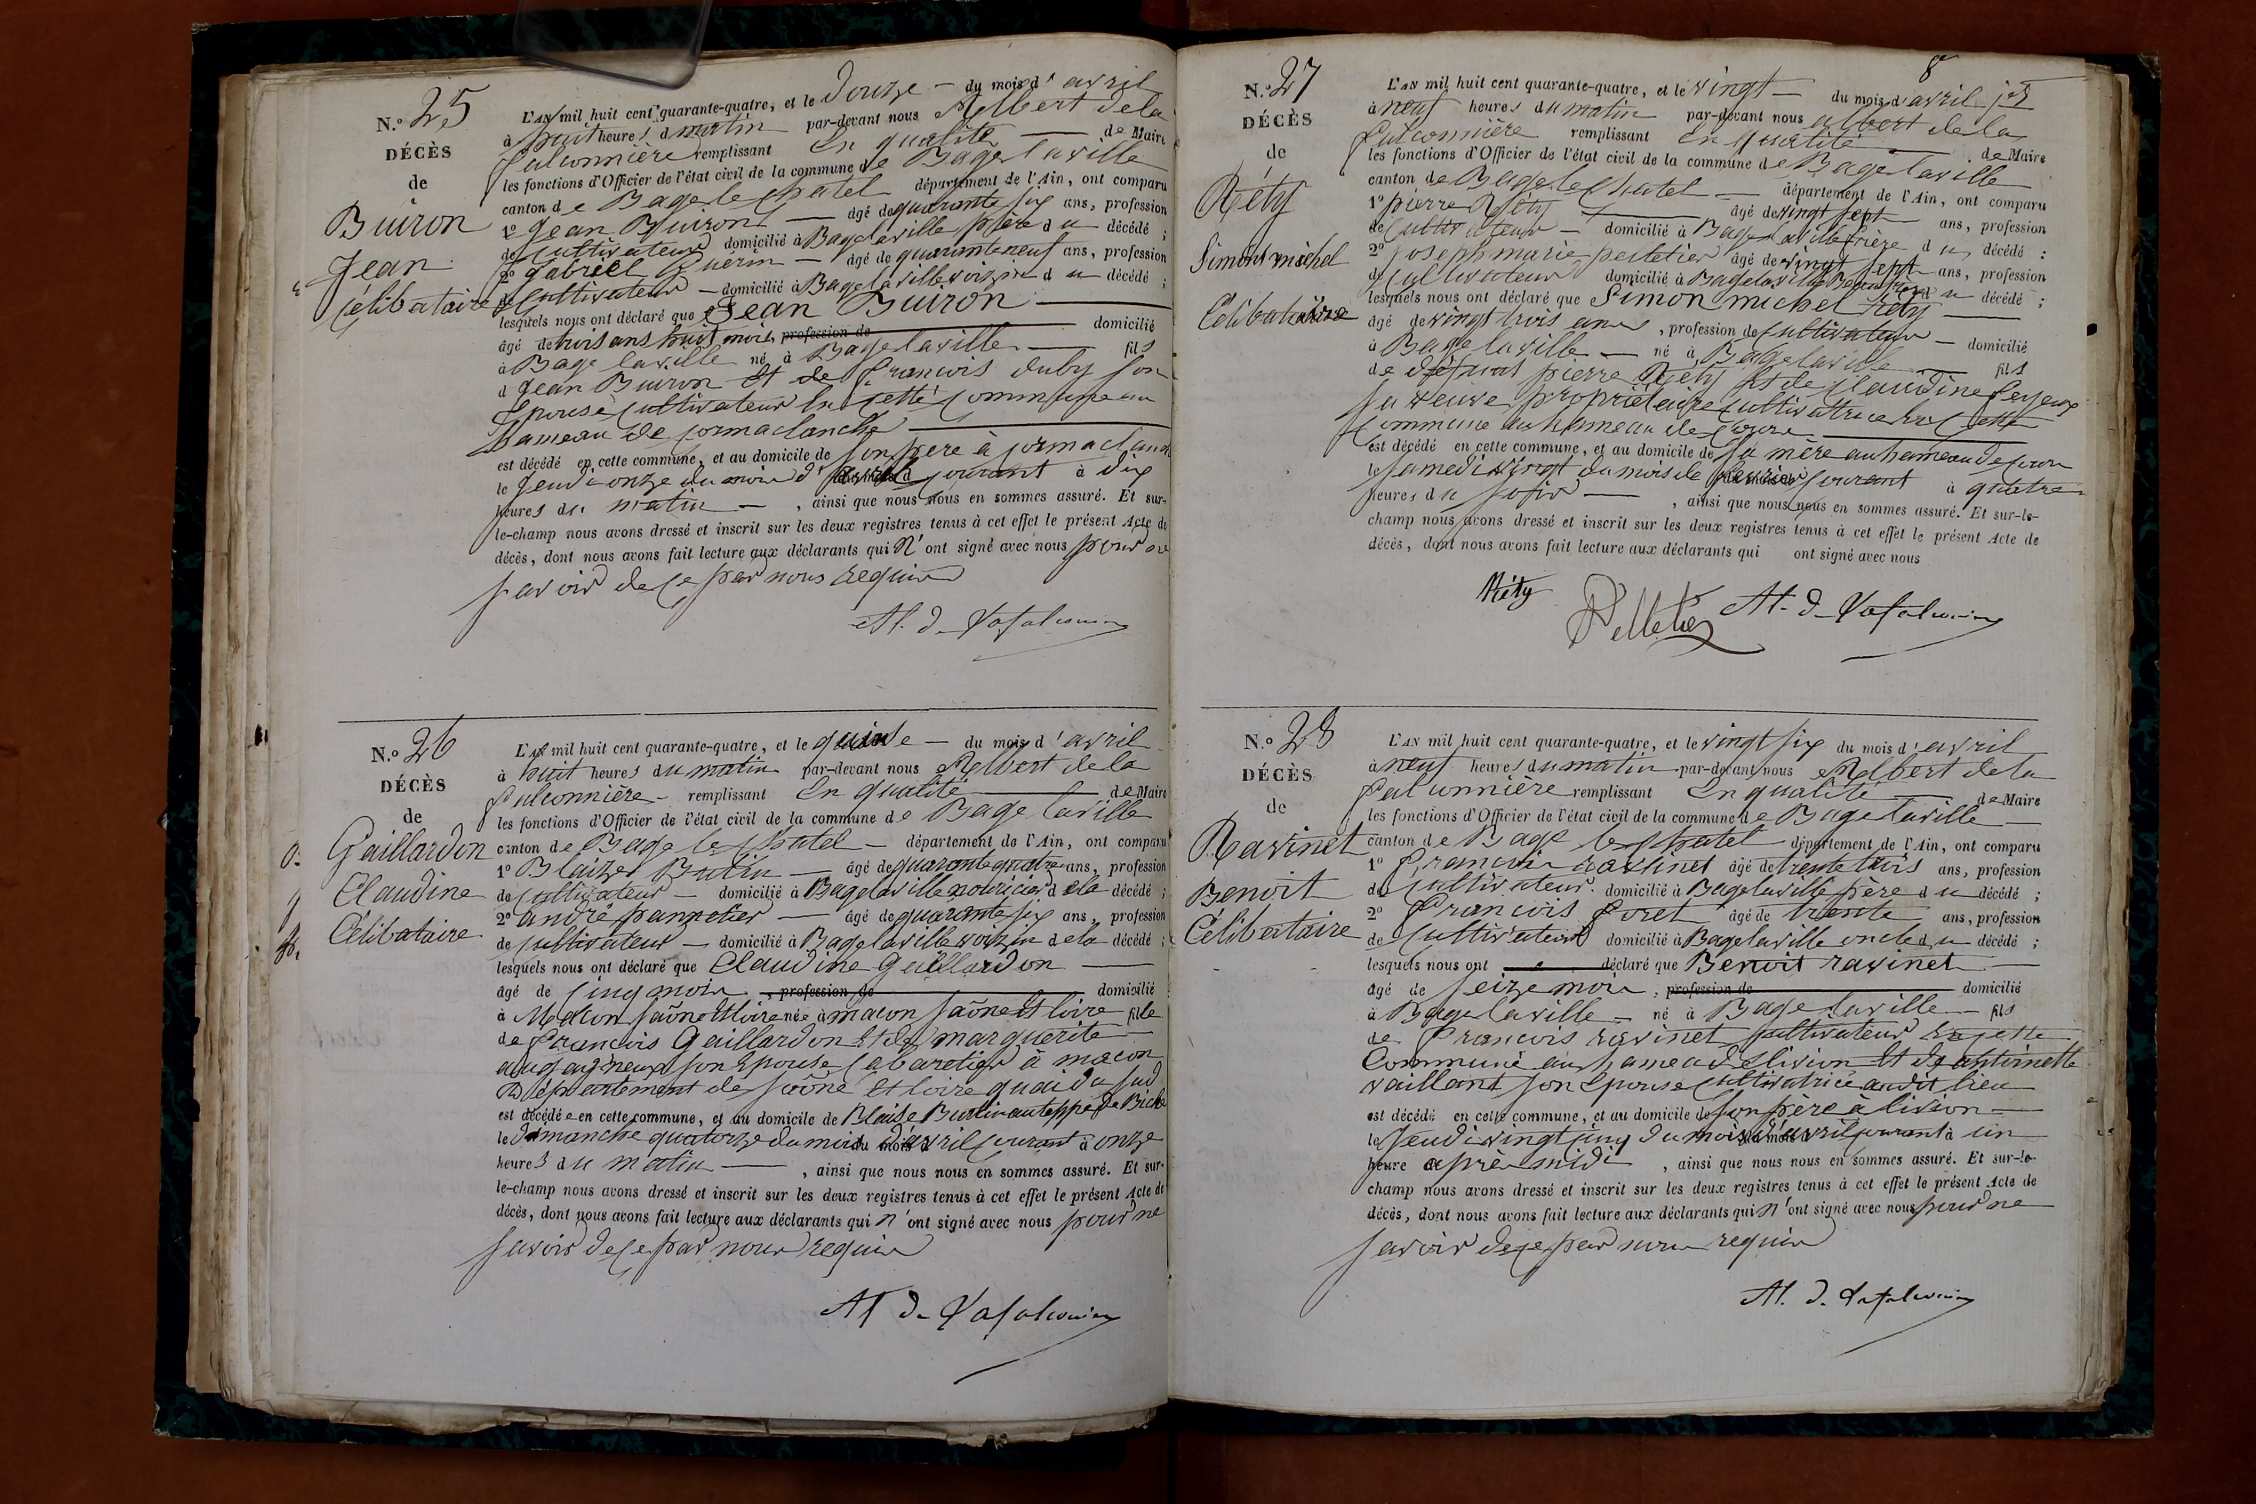 N.º 25
DÉCÈS
de
Buiron
Jean
Célibataire
L'AN mil huit cent quarante-quatre, et le Douze — du mois d'avril
à huit heures d matin par-devant nous Albert dela
falconnière remplissant en qualité — de Maire
les fonctions d'Officier de l'état civil de la commune de Bagé laville
canton de Bagé le chatel département de l'Ain, ont comparu
1º Jean Buiron — âgé de quarante six ans, profession
de cultivateur domicilié à Bagé laville père du décédé ;
2º gabriel Guerin — âgé de quarante neuf ans, profession
de Cultivateur — domicilié à Bagé laville voizin du décédé ;
lesquels nous ont déclaré que Jean Buiron
âgé de trois ans huit mois, profession de domicilié
à Bagé laville né à Bagé laville — fils
d Jean Buiron Et de francois duby son
Epouse cultivateur en cette commune au
hameau de jormaclanche
est décédé en cette commune, et au domicile de son père à jormaclanche
le Jeudi onze du mois d'avril courant à dix
heures du matin — , ainsi que nous nous en sommes assuré. Et sur-
le-champ nous avons dressé et inscrit sur les deux registres tenus à cet effet le présent Acte de
décès, dont nous avons fait lecture aux déclarants qui n'ont signé avec nous pour ne
savoir de ce par nous requis
Al. d. Lafalconnière
N.º 26
DÉCÈS
de
Gaillardon
Claudine
Célibataire
L'AN mil huit cent quarante-quatre, et le quinze — du mois d'avril
à huit heures du matin par-devant nous Albert dela
falconnière — remplissant en qualité — de Maire
les fonctions d'Officier de l'état civil de la commune de Bagé laville
canton de Bagé le chatel — département de l'Ain, ont comparu
1º Blaize Butin — âgé de quarante quatre ans, profession
de cultivateur — domicilié à Bagé laville nouricier de la décédé ;
2º andré pannetier — âgé de quarante six ans, profession
de cultivateur — domicilié à Bagé laville voizin de la décédé ;
lesquels nous ont déclaré que Claudine Gaillardon —
âgé de cinq mois, profession de domicilié
à Macon saône et loire née à macon saône et loire fille
de francois Gaillardon Et de marguerite
son Epouse Cabaretier à macon
Département de saône et loire quai du sud
est décédée en cette commune, et au domicile de Blaise Butin
le dimanche quatorze du mois d'avril courant à onze
heures du matin — , ainsi que nous nous en sommes assuré. Et sur-
le-champ nous avons dressé et inscrit sur les deux registres tenus à cet effet le présent Acte de
décès, dont nous avons fait lecture aux déclarants qui n'ont signé avec nous pour ne
savoir de ce par nous requis
Al d. Lafalconnière
8
N.º 27
DÉCÈS
de
Réty
Simont michel
Célibataire
L'AN mil huit cent quarante-quatre, et le vingt — du mois d'avril
à neuf heures du matin par-devant nous albert dela
falconnière remplissant en qualité — de Maire
les fonctions d'Officier de l'état civil de la commune de Bagé laville
canton de Bagé le chatel — département de l'Ain, ont comparu
1º pierre Réty — âgé de vingt sept ans, profession
de cultivateur — domicilié à Bagé laville frère du décédé :
2º joseph marie pelletier âgé de vingt sept ans, profession
de cultivateur domicilié à Bagé laville Beau frère du décédé ;
lesquels nous ont déclaré que Simon michel Réty —
âgé de vingt trois ans, profession de cultivateur — domicilié
à Bagé laville — né à Bagé laville — fils
de défunt pierre Réty Et de Claudine
sa veuve propriétaire cultivatrice en cette
Commune au hameau de
est décédé en cette commune, et au domicile de sa mère au hameau de
le samedi vingt du mois de courant à quatre
heures du soir — , ainsi que nous nous en sommes assuré. Et sur-le-
champ nous avons dressé et inscrit sur les deux registres tenus à cet effet le présent Acte de
décès, dont nous avons fait lecture aux déclarants qui ont signé avec nous
Réty
Pelletier Al. d. Lafalconnière
N.º 28
DÉCÈS
de
Ravinet
Benoit
Célibataire
L'AN mil huit cent quarante-quatre, et le vingt six du mois d'avril
à neuf heures du matin par-devant nous Albert dela
falconnière remplissant en qualité — de Maire
les fonctions d'Officier de l'état civil de la commune de Bagé laville —
canton de Bagé le chatel département de l'Ain, ont comparu
1º francois ravinet âgé de trente trois ans, profession
de cultivateur domicilié à Bagé laville père du décédé ;
2º francois foret âgé de trente ans, profession
de cultivateur domicilié à Bagé laville oncle du décédé ;
lesquels nous ont déclaré que Benoit ravinet —
âgé de seize mois, profession de domicilié
à Bagé laville — né à Bagé laville — fils
de francois ravinet cultivateur en cette
Commune au hameau de lision Et de antoinette
vaillant son Epouse cultivatrice audit lieu
est décédé en cette commune, et au domicile de son père à lision —
le Jeudi vingt cinq du mois d'avril courant à un
heure après midi , ainsi que nous nous en sommes assuré. Et sur-le-
champ nous avons dressé et inscrit sur les deux registres tenus à cet effet le présent Acte de
décès, dont nous avons fait lecture aux déclarants qui n'ont signé avec nous pour ne
savoir de ce par nous requis
Al. d. Lafalconnière